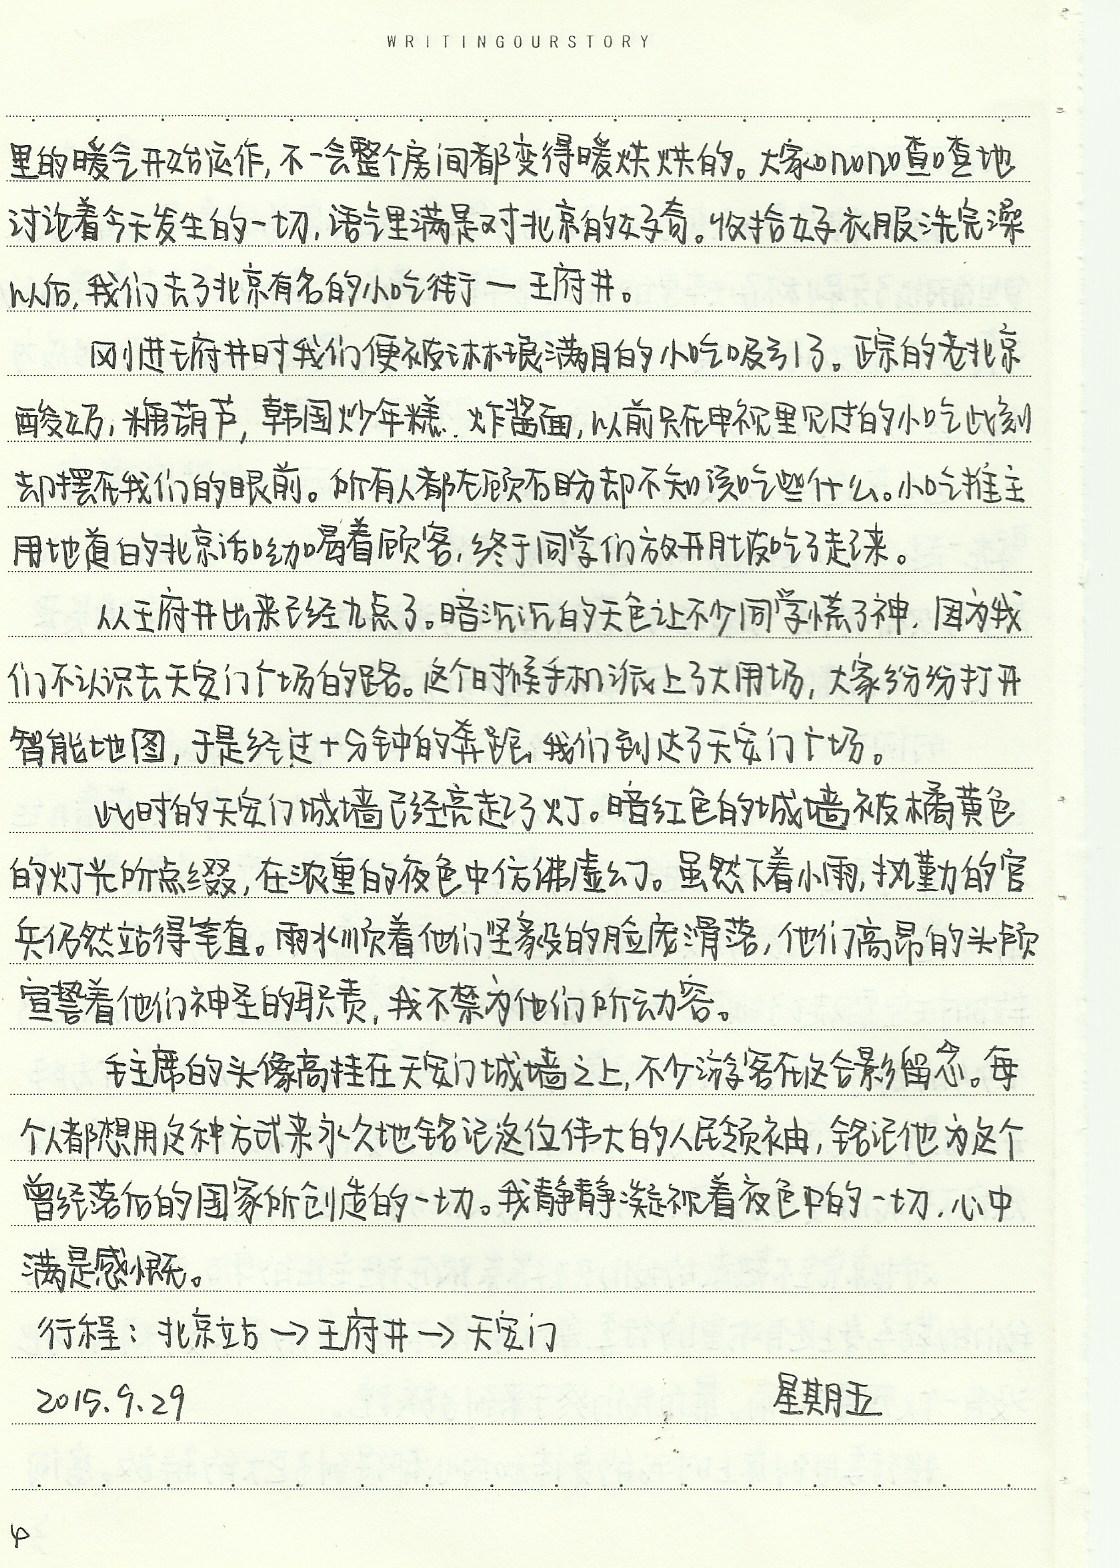 WRITINGOURSTORY
里的暖气开始运作,不一会整个房间都变得暖烘烘的。大家叽叽喳喳地
讨论着今天发生的一切,语气里满是对北京的好奇。收拾好衣服洗完澡
以后,我们去了北京有名的小吃街一王府井。
刚进王府井时我们便被琳琅满目的小吃吸引了。正宗的老北京
酸奶,糖葫芦,韩国炒年糕、炸酱面,以前只在电视里见过的小吃此刻
却摆在我们的眼前。所有人都左顾右盼却不知该吃些什么。小吃摊主
用地道的北京话吆喝着顾客,终于同学们放开肚皮吃了起来。
从王府井出来已经九点了。暗沉沉的天色让不少同学慌了神,因为我
们不认识去天安门广场的路。这个时候手机派上了大用场,大家纷纷打开
智能地图,于是经过十分钟的奔跑,我们到达了天安门广场。
此时的天安门城墙已经亮起了灯。暗红色的城墙被橘黄色
的灯光所点缀,在浓重的夜色中仿佛虚幻。虽然下着小雨,执勤的官
兵仍然站得笔直。雨水顺着他们坚毅的脸庞滑落,他们高昂的头颅
宣誓着他们神圣的职责,我不禁为他们所动容。
毛主席的头像高挂在天安门城墙之上,不少游客在这合影留念。每
个人都想用这种方式来永久地铭记这位伟大的人民领袖,铭记他为这个
曾经落后的国家所创造的一切。我静静凝视着夜色中的一切,心中
满是感慨。
行程:北京站→王府井→天安门
2015.9.29 星期五
4